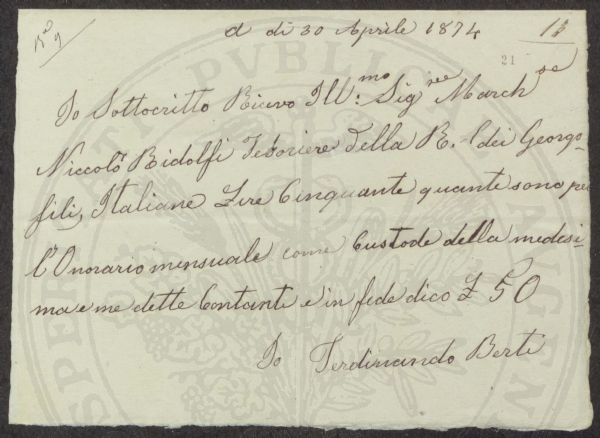 a dì 30 Aprile 1874
21
Io Sottocritto Ricevo Ill:mo Sigre March se
Niccolò Ridolfi Tesoriere della R. dei Georgo-
fili, Italiane Lire Cinquante quante sono per
l'Onorario mensuale come Custode della medesi-
ma e me dette Contanti e in fede dico £ 50
Io Ferdinando Berti